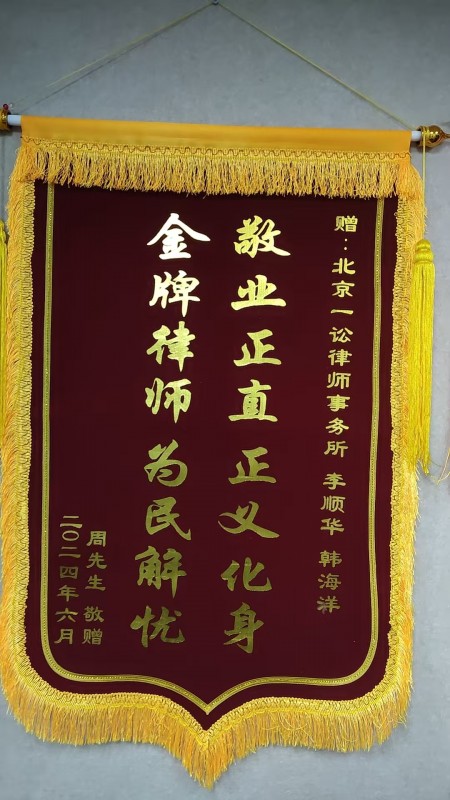 赠：北京一讼律师事务所 李顺华 韩海洋
敬业正直 正义化身
金牌律师 为民解忧
周先生 敬赠
二〇二四年六月